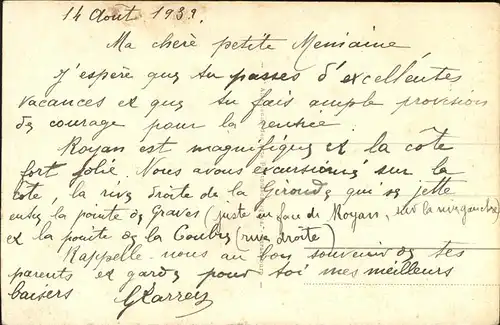 14 Aout 1939.
Ma chère petite
J'espère que tu passes d'excellentes
vacances et que tu fais ample provision
de courage pour la rentrée.
Royan est magnifique et la côte
fort jolie. Nous avons excursionné sur la
côte la rive droite de la Gironde qui se jette
entre la pointe de Graves (juste en face de Royan, sur la rive gauche)
et la pointe de la Coubre (rive droite)
Rappelle-nous au bon souvenir de tes
parents et garde pour toi mes meilleurs
baisers